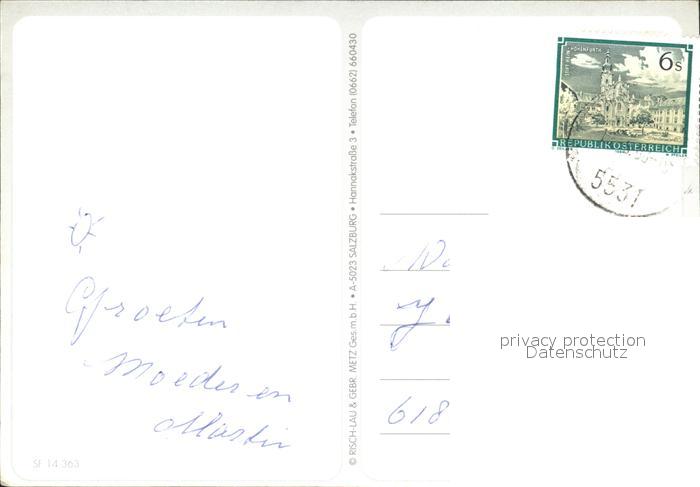 Groeten
Moeder en
Martin
SF 14 363
© RISCH-LAU & GEBR. METZ Ges.m.b.H. • A-5023 SALZBURG • Hannakstraße 3 • Telefon (0662) 660430
STIFT REIN-HOHENFURTH
6s
REPUBLIK ÖSTERREICH
5531
privacy protection
Datenschutz
618